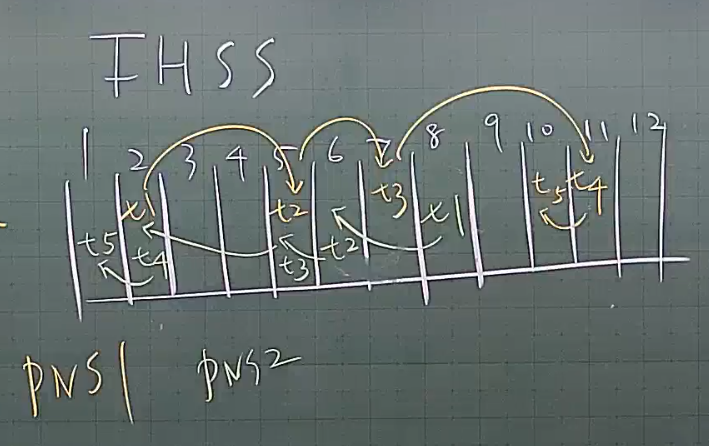 FHSS
1 2 3 4 5 6 7 8 9 10 11 12
t1 t2 t3 t1 t5 t4
t5 t4 t3 t2
PNS1 PNS2